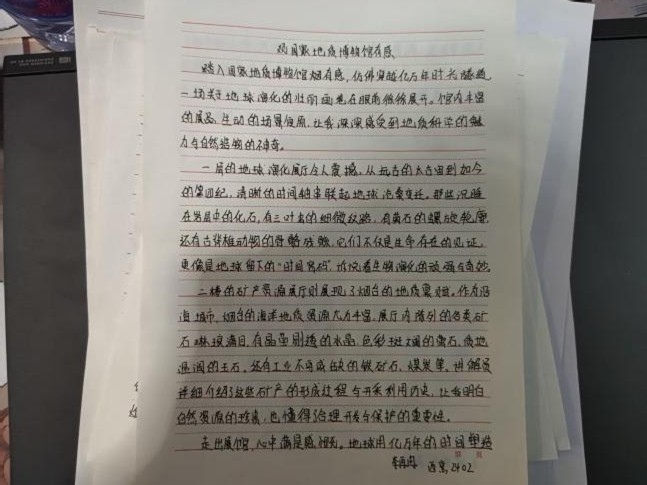 观国家地质博物馆有感
踏入国家地质博物馆烟台感，仿佛穿越亿万年时光隧道，
一场关于地球演化的壮丽画卷在眼前徐徐展开。馆内丰富
的展品、生动的场景复原，让我深深感受到地质科学的魅
力与自然造物的神奇。
一层的地球演化展厅令人震撼。从远古的太古宙到如今
的第四纪，清晰的时间轴串联起地球沧桑变迁。那些沉睡
在岩层中的化石，有三叶虫的细微纹路，有菊石的螺旋轮廓
还有古脊椎动物的骨骼残骸，它们不仅是生命存在的见证，
更像是地球留下的“时间密码”，诉说着生物演化的顽强与奇妙。
二楼的矿产资源展厅则展现了烟台的地质禀赋。作为沿
海城市，烟台的海洋地质资源尤为丰富，展厅内陈列的各类矿
石琳琅满目，有晶莹剔透的水晶，色彩斑斓的萤石，质地
温润的玉石，还有工业不可或缺的铁矿石、煤炭等。讲解员
详细介绍了这些矿产的形成过程与开采利用历史，让我明白
自然资源的珍贵，也懂得合理开发与保护的重要性。
走出展馆，心中满是感慨。地球用亿万年的时间塑造
2402